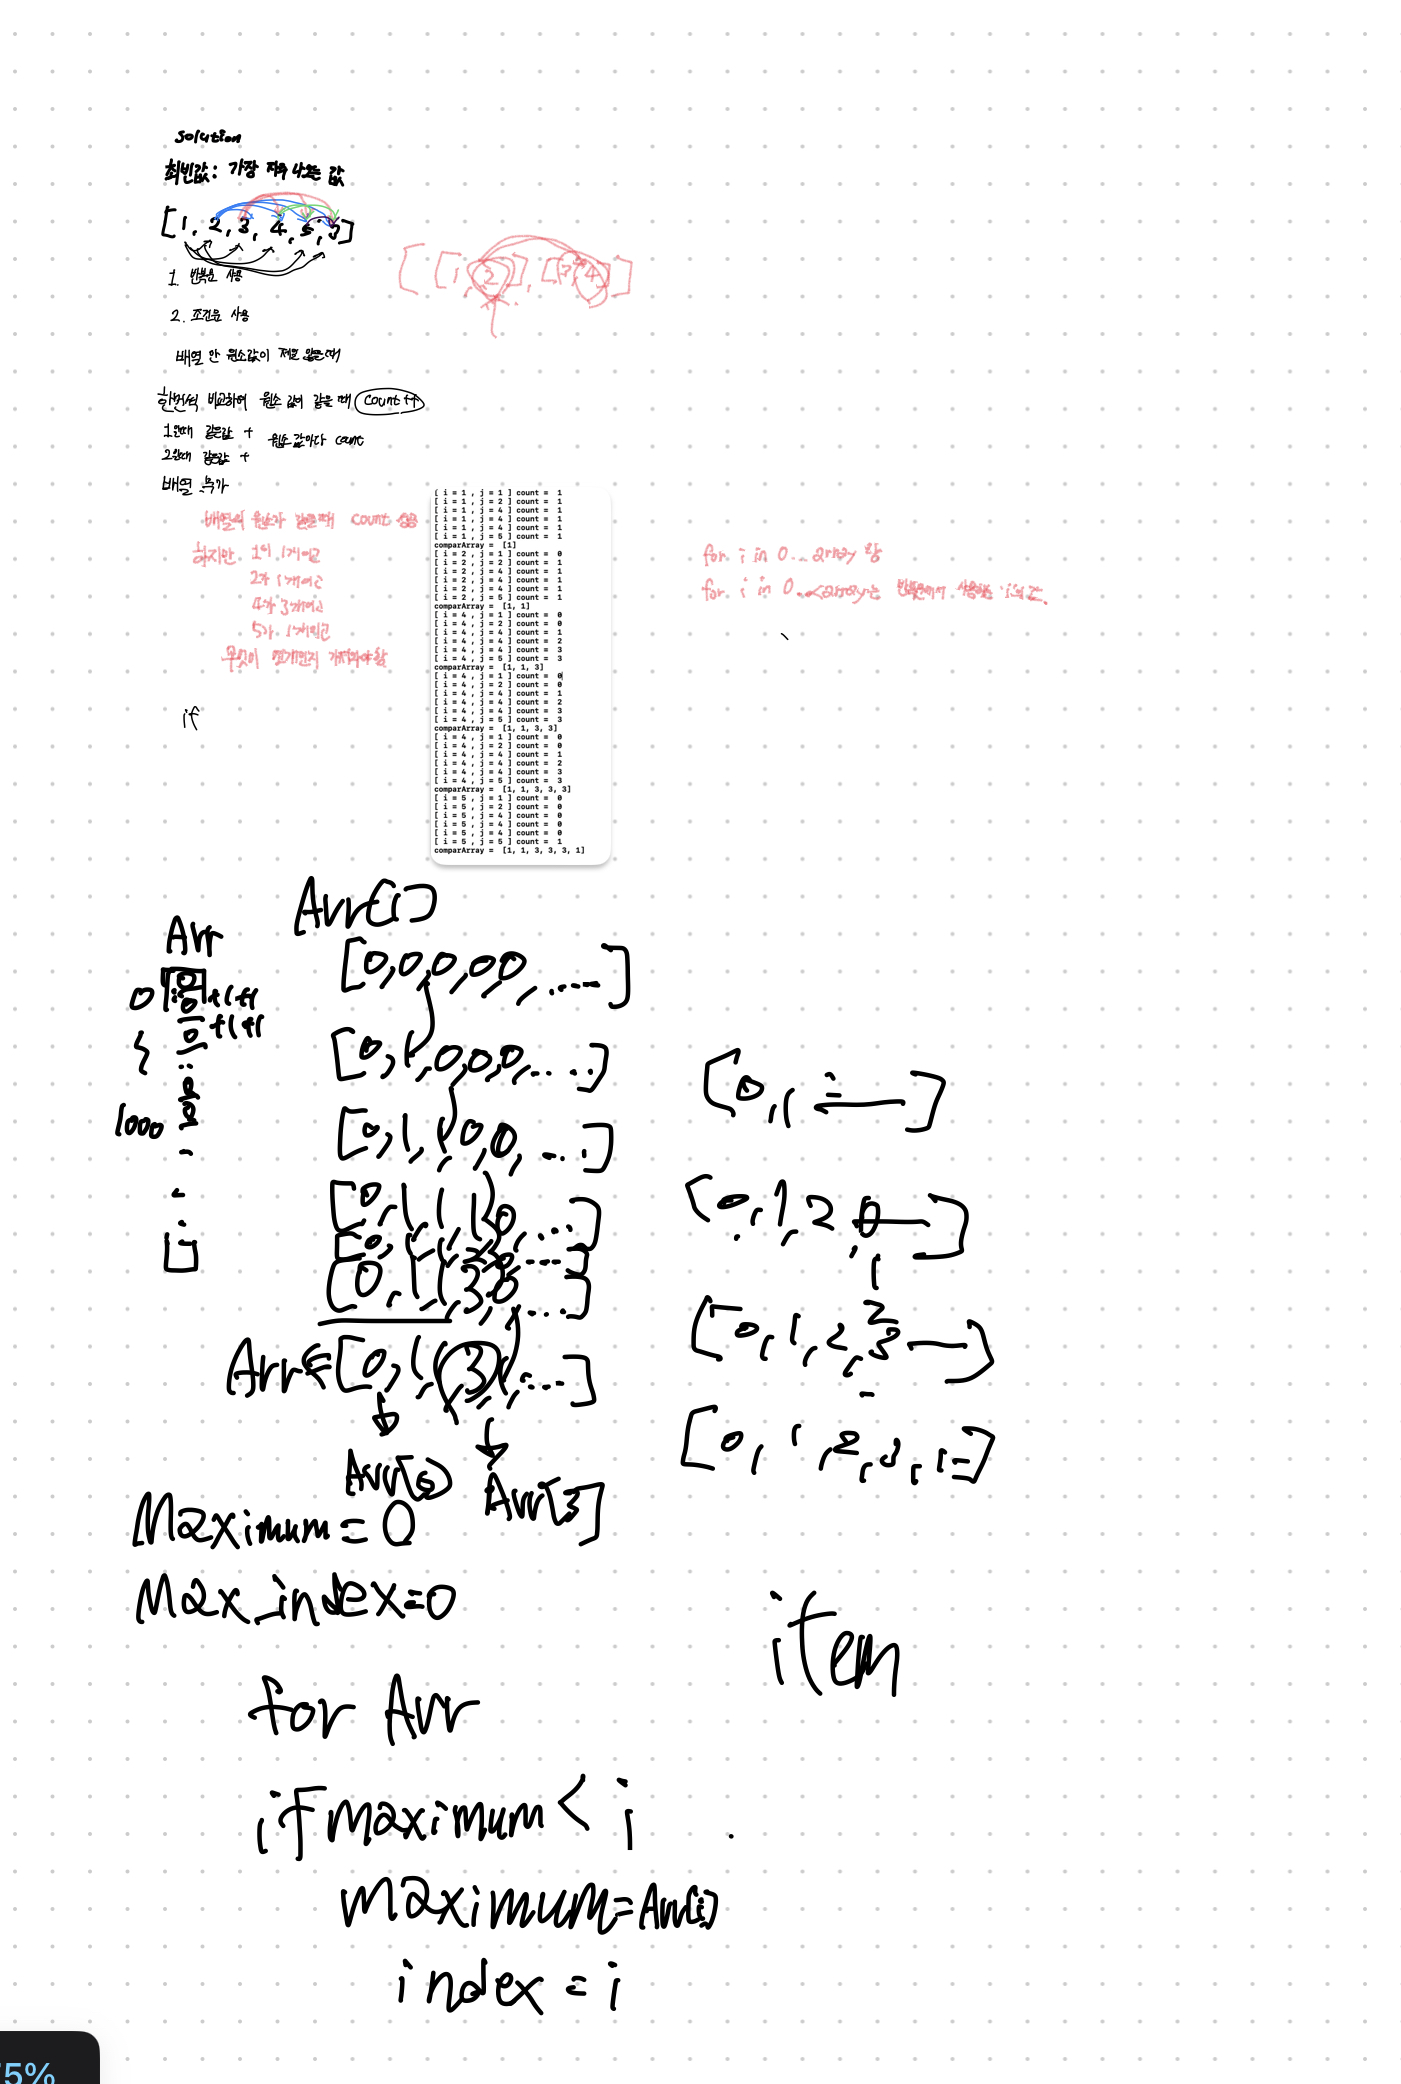 Solution
최빈값: 가장 자주 나오는 값
[1, 2, 3, 4, 5, 3]
[ [1, 2], [3, 4] ]
1. 반복문 사용
2. 조건문 사용
배열 안 원소값이 제로 않을때
한번씩 비교하여 원소 값이 같을 때 count ++
1일때 같은값 +
원소 값마다 count
2일때 같은값 +
배열 추가
배열의 원소가 같을때 count
하지만 1이 1개이고
2가 1개이고
4가 3개이고
5가 1개이고
무엇이 몇개인지 가져와야함
if
[ i = 1 , j = 1 ] count =  1
[ i = 1 , j = 2 ] count =  1
[ i = 1 , j = 4 ] count =  1
[ i = 1 , j = 4 ] count =  1
[ i = 1 , j = 4 ] count =  1
[ i = 1 , j = 5 ] count =  1
comparArray =  [1]
[ i = 2 , j = 1 ] count =  0
[ i = 2 , j = 2 ] count =  1
[ i = 2 , j = 4 ] count =  1
[ i = 2 , j = 4 ] count =  1
[ i = 2 , j = 4 ] count =  1
[ i = 2 , j = 5 ] count =  1
comparArray =  [1, 1]
[ i = 4 , j = 1 ] count =  0
[ i = 4 , j = 2 ] count =  0
[ i = 4 , j = 4 ] count =  1
[ i = 4 , j = 4 ] count =  2
[ i = 4 , j = 4 ] count =  3
[ i = 4 , j = 5 ] count =  3
comparArray =  [1, 1, 3]
[ i = 4 , j = 1 ] count =  0
[ i = 4 , j = 2 ] count =  0
[ i = 4 , j = 4 ] count =  1
[ i = 4 , j = 4 ] count =  2
[ i = 4 , j = 4 ] count =  3
[ i = 4 , j = 5 ] count =  3
comparArray =  [1, 1, 3, 3]
[ i = 4 , j = 1 ] count =  0
[ i = 4 , j = 2 ] count =  0
[ i = 4 , j = 4 ] count =  1
[ i = 4 , j = 4 ] count =  2
[ i = 4 , j = 4 ] count =  3
[ i = 4 , j = 5 ] count =  3
comparArray =  [1, 1, 3, 3, 3]
[ i = 5 , j = 1 ] count =  0
[ i = 5 , j = 2 ] count =  0
[ i = 5 , j = 4 ] count =  0
[ i = 5 , j = 4 ] count =  0
[ i = 5 , j = 4 ] count =  0
[ i = 5 , j = 5 ] count =  1
comparArray =  [1, 1, 3, 3, 3, 1]
for i in 0...array 랑
for i in 0..<array는 반복문에서 사용하는 i의 값.
Arr[i]
Arr
0
+1+1
+1+1
1000
[0,0,0,0,0,.....]
[0,1,0,0,0,.....]
[0,1,1,0,0,....]
[0,1,1,1,0,....]
[0,1,1,2,0,....]
[0,1,1,3,0,....]
Arr=[0,1,1,3,1,...]
Arr[0]
Arr[3]
[0,1,
[0,1,2,0
[0,1,2,3
[0,1,2,3,1
Maximum=0
Max_index=0
item
for Arr
if maximum < i
maximum=Arr[i]
index = i
5%